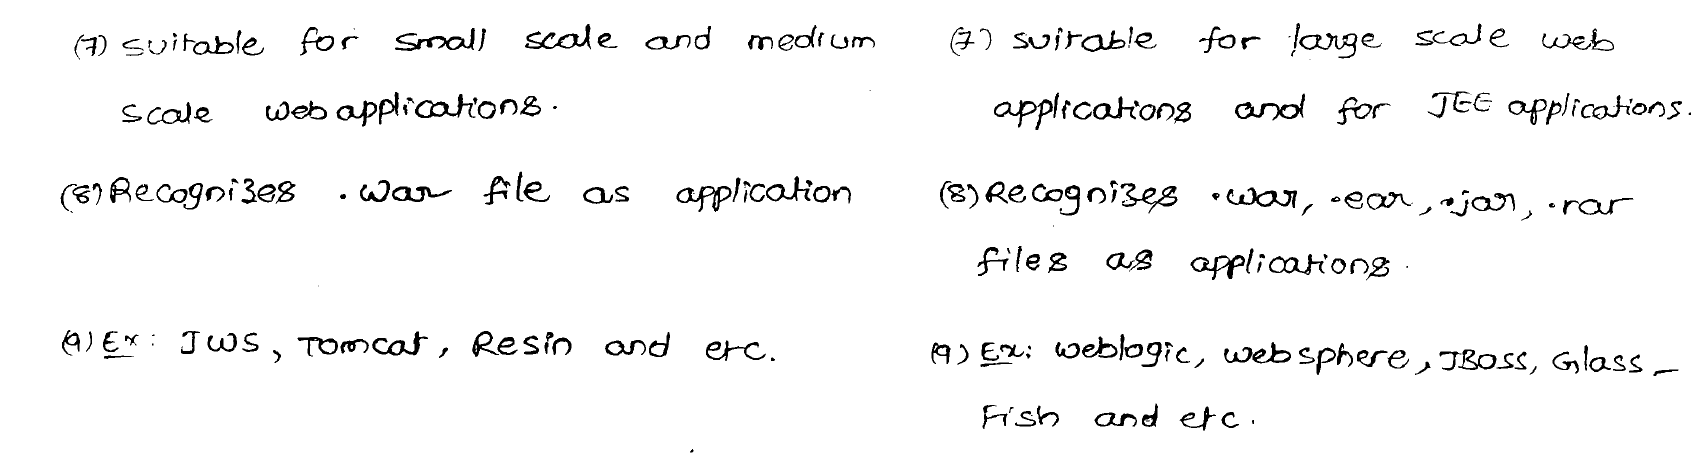 (7) suitable for small scale and medium
scale web applications.
(8) Recognizes .war file as application
(9) Ex: JWS, Tomcat, Resin and etc.
(7) suitable for large scale web
applications and for JEE applications.
(8) Recognizes .war, .ear, .jar, .rar
files as applications.
(9) Ex: weblogic, websphere, JBoss, Glass-
Fish and etc.